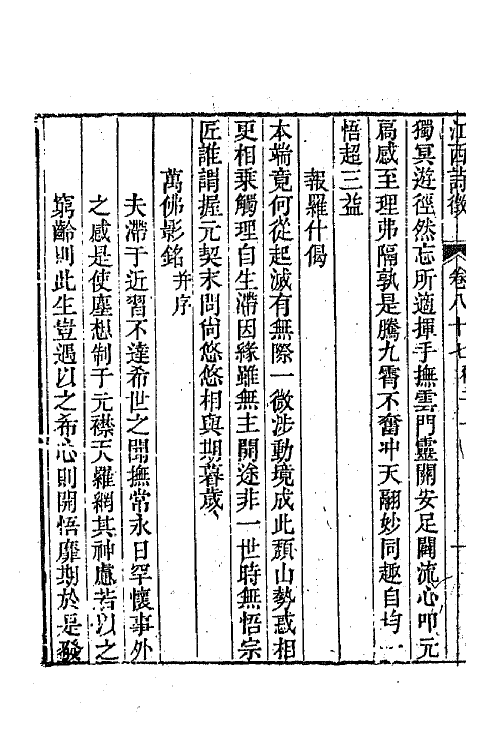 江西詩徵 卷八十七
獨冥遊徑然忘所適揮手撫雲門靈關安足闢流心叩元
扃感至理弗隔孰是騰九霄不奮沖天翮妙同趣自均一
悟超三益
報羅什偈
本端竟何從起滅有無際一微涉動境成此頹山勢惑相
更相乗觸理自生滯因緣雖無主開途非一世時無悟宗
匠誰謂握元契末問尙悠悠相與期暮歲
萬佛影銘并序
夫滯于近習不達希世之聞撫常永日罕懷事外
之感是使塵想制于元襟天羅網其神慮若以之
窮齡則此生豈遇以之希心則開悟靡期於是發